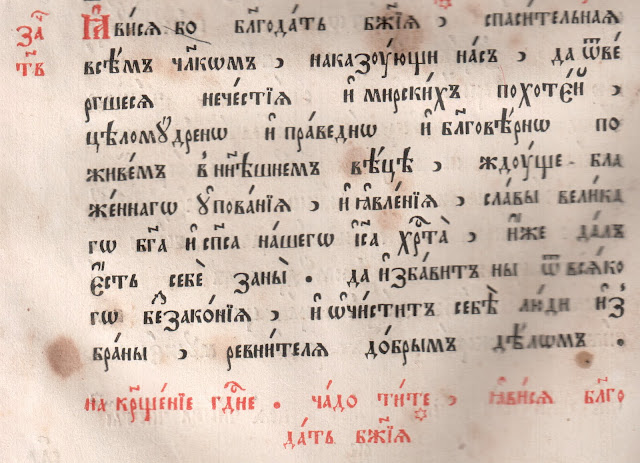 За҄ т҃в
Ꙗ҆ви́сѧ бо блг҃ода́ть бж҃їѧ , спаси́тельнаѧ
всѣ́мъ чл҃кѡмъ , наказꙋ́ющи на́съ , да ѿве́
ргшесѧ нече́стїѧ и҆ мирски́хъ по́хоте́й ,
цѣломꙋ́дренѡ и҆ пра́веднѡ и҆ блг҃овѣ́рнѡ по
живе́мъ в ны́нѣшнемъ вѣ́цѣ , ждꙋ́ще бла
же́ннагѡ ᲂу҆пова́нїѧ , и҆ ꙗ҆вле́нїѧ , сла́вы вели́ка
гѡ бг҃а и҆ сп҃са на́шегѡ і҆с҃а хрⷭ҇та̀ , и҆́же да́лъ
є҆́сть себѐ за ны̀ . да и҆зба́витъ ны ѿ всѧ́ко
гѡ беззако́нїѧ , и҆ ѡ҆чи́ститъ себѣ̀ лю́ди и҆з̾
бра́ны , ревни́телѧ до́брымъ дѣ́лѡмъ .
на крⷳ҇ще́нїе гдⷭ҇не . ча́до ти́те , ꙗ҆ви́сѧ блг҃о
да́ть бж҃їѧ